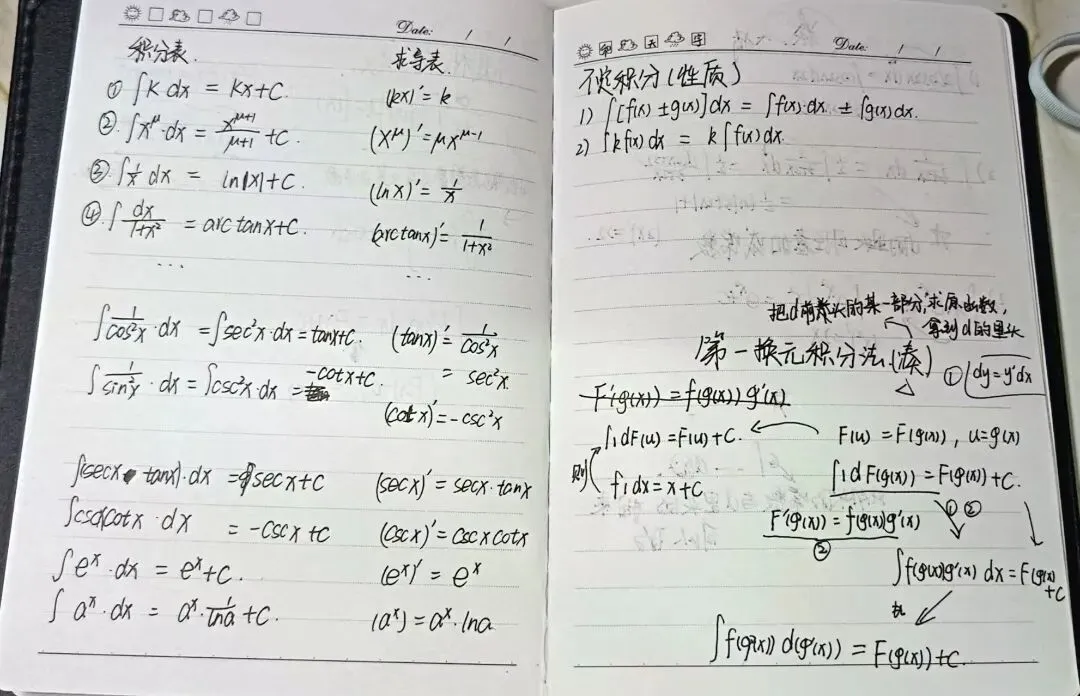 Date: / /
积分表 求导表
① ∫k dx = kx+C. (kx)′ = k
② ∫x^μ·dx = x^(μ+1)/(μ+1) +C. (x^μ)′ = μx^(μ-1)
③ ∫1/x dx = ln|x|+C. (ln x)′ = 1/x
④ ∫dx/(1+x²) = arctanx+C. (arctanx)′ = 1/(1+x²)
... ...
∫1/cos²x·dx = ∫sec²x·dx = tanx+C. (tanx)′ = 1/cos²x
= sec²x.
∫1/sin²x·dx = ∫csc²x·dx = -cotx+C.
(cotx)′ = -csc²x
∫(secx·tanx)·dx = secx+C (secx)′ = secx·tanx
∫cscxcotx·dx = -cscx+C (cscx)′ = cscxcotx
∫e^x·dx = e^x+C. (e^x)′ = e^x
∫a^x·dx = a^x·1/lna +C. (a^x) = a^x·lna
Date: / /
不定积分(性质)
1) ∫[f(x)±g(x)]dx = ∫f(x)·dx ± ∫g(x)dx.
2) ∫kf(x)dx = k∫f(x)dx.
把d前头的某一部分,求原函数,
拿到d的里头
第一换元积分法(凑)
① dy=y′dx
F′(φ(x)) = f(φ(x)) φ′(x)
∫1dF(u) = F(u)+C. F(u) = F(φ(x)), u=φ(x)
则 ∫1dx = x+C ∫1dF(φ(x)) = F(φ(x))+C.
F′(φ(x)) = f(φ(x))φ′(x)
②
①②
∫f(φ(x))φ′(x) dx = F(φ(x))
+C
∫f(φ(x)) d(φ′(x)) = F(φ(x))+C.